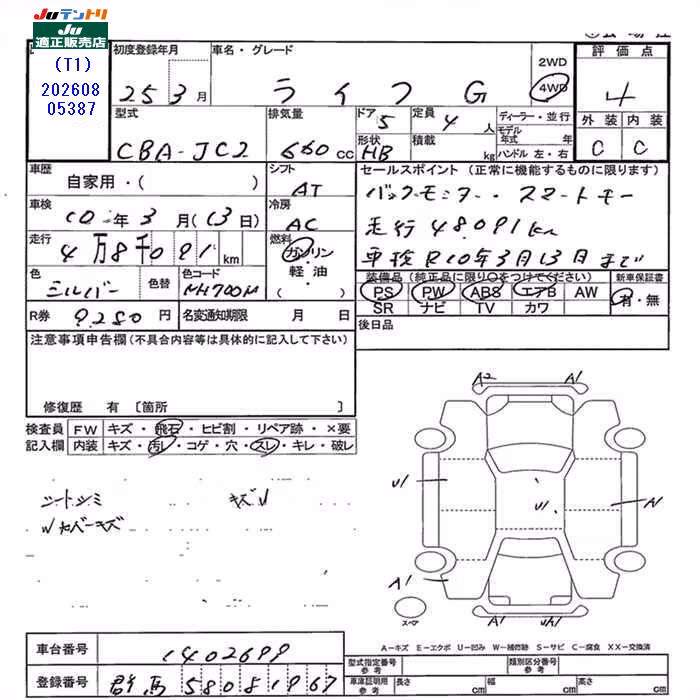 JUテントリ
JU
適正販売店
(T1)
202608
05387
初度登録年月
25 3月
車名・グレード
ライフ G
2WD
4WD
評価点
4
外装 内装
C C
型式
CBA-JC2
排気量
660 cc
ドア 5
形状 HB
定員 4 人
積載 kg
ディーラー・並行
モデル年式 年
ハンドル 左・右
車歴
自家用・( )
シフト
AT
セールスポイント (正常に機能するものに限ります)
バックモニター・スマートキー
走行 48091km
車検R10年3月13日まで
車検
10年3月(13日)
冷房
AC
走行
4万8千091km
燃料
ガソリン
軽油
( )
色
シルバー
色替
色コード
NH700M
装備品 (純正品に限り○をつけてください)
PS PW ABS エアB AW
SR ナビ TV カワ
新車保証書
有・無
R券 9,280円
名変通知期限 月 日
後日品
注意事項申告欄(不具合内容等は具体的に記入して下さい)
修復歴 有 〔箇所 〕
検査員記入欄
FW キズ・飛石・ヒビ割・リペア跡・×要
内装 キズ・汚レ・コゲ・穴・スレ・キレ・破レ
シートシミ キズU
A2 A1
U1 U1 A1
A1
A1
スペア
A-キズ E-エクボ U-凹み W-補修跡 S-サビ C-腐食 XX-交換済
車台番号
1402699
登録番号
群馬 580 る 1967
型式指定番号
参考
類別区分番号
参考
車庫証明用
参考
長さ cm
幅 cm
高さ cm